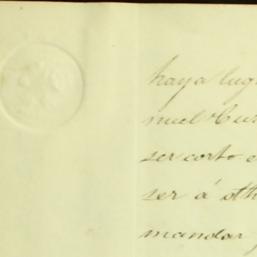 haya lug
nuel Cur
ser corto e
ser á oth
mandar